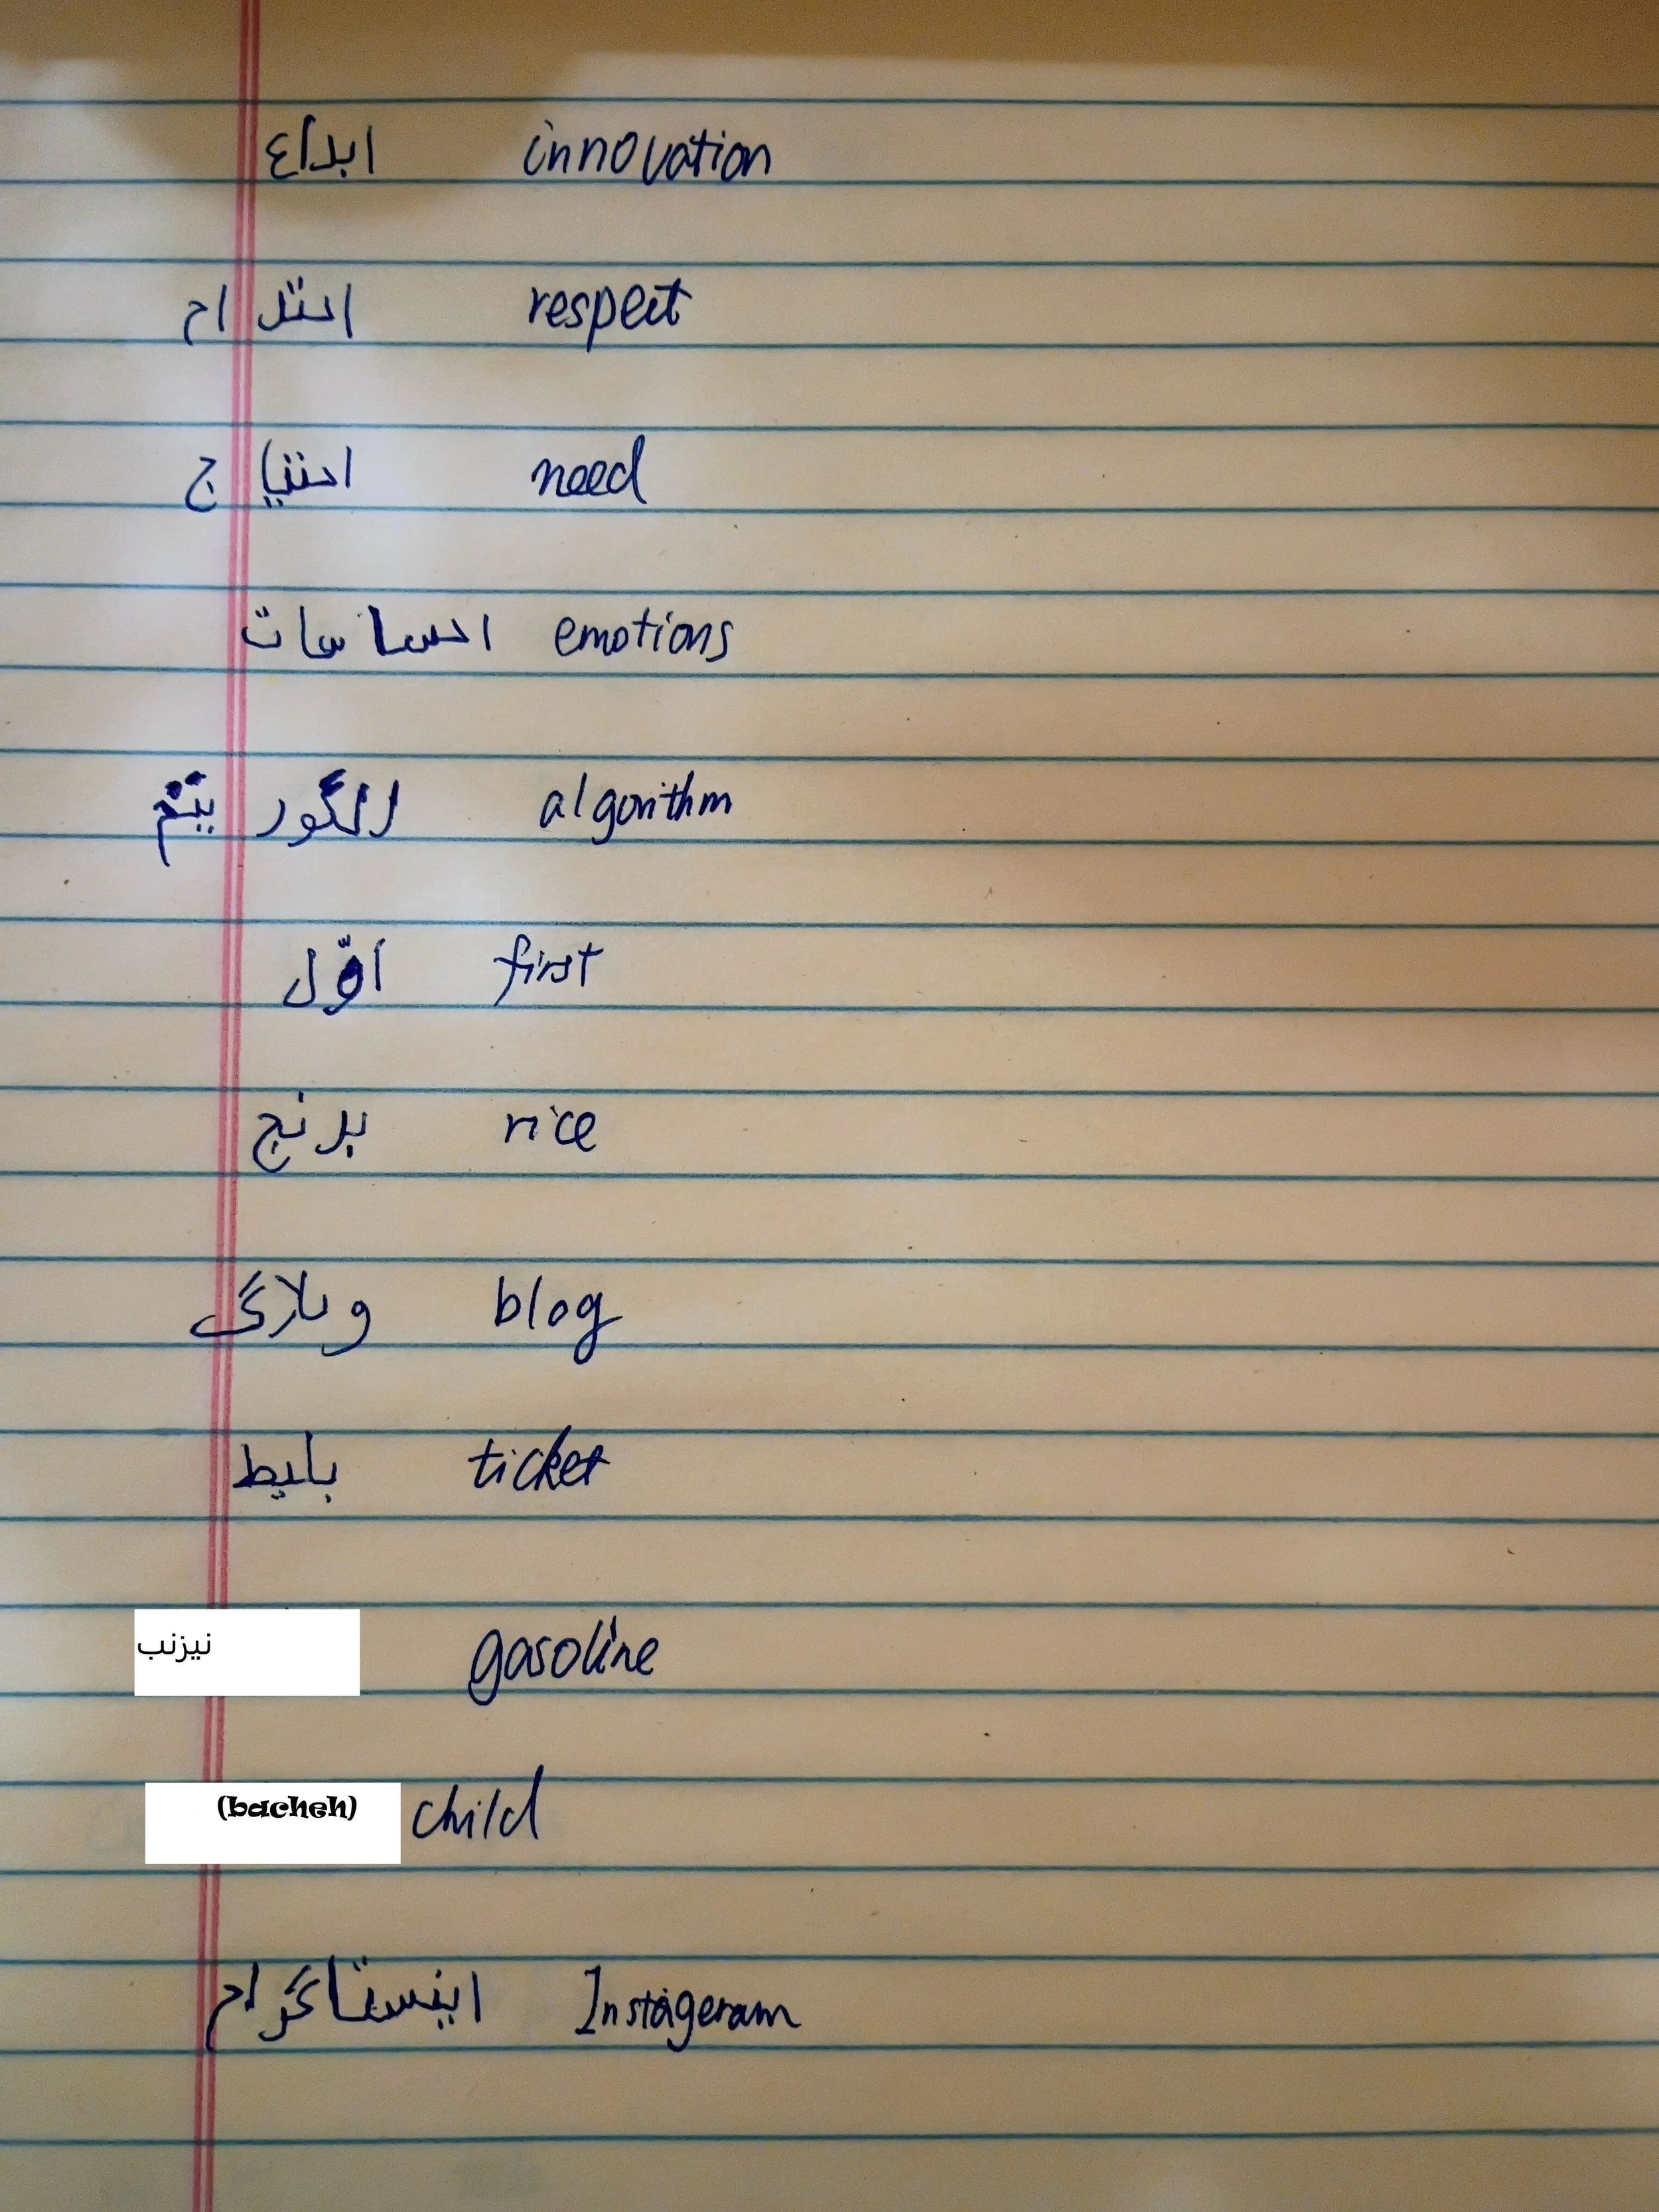 ابداع innovation
احترام respect
احتیاج need
احساسات emotions
الگوریتم algorithm
اوّل first
برنج rice
وبلاگ blog
بلیط ticket
نیزنب gasoline
(bacheh) child
اینستاگرام Instageram